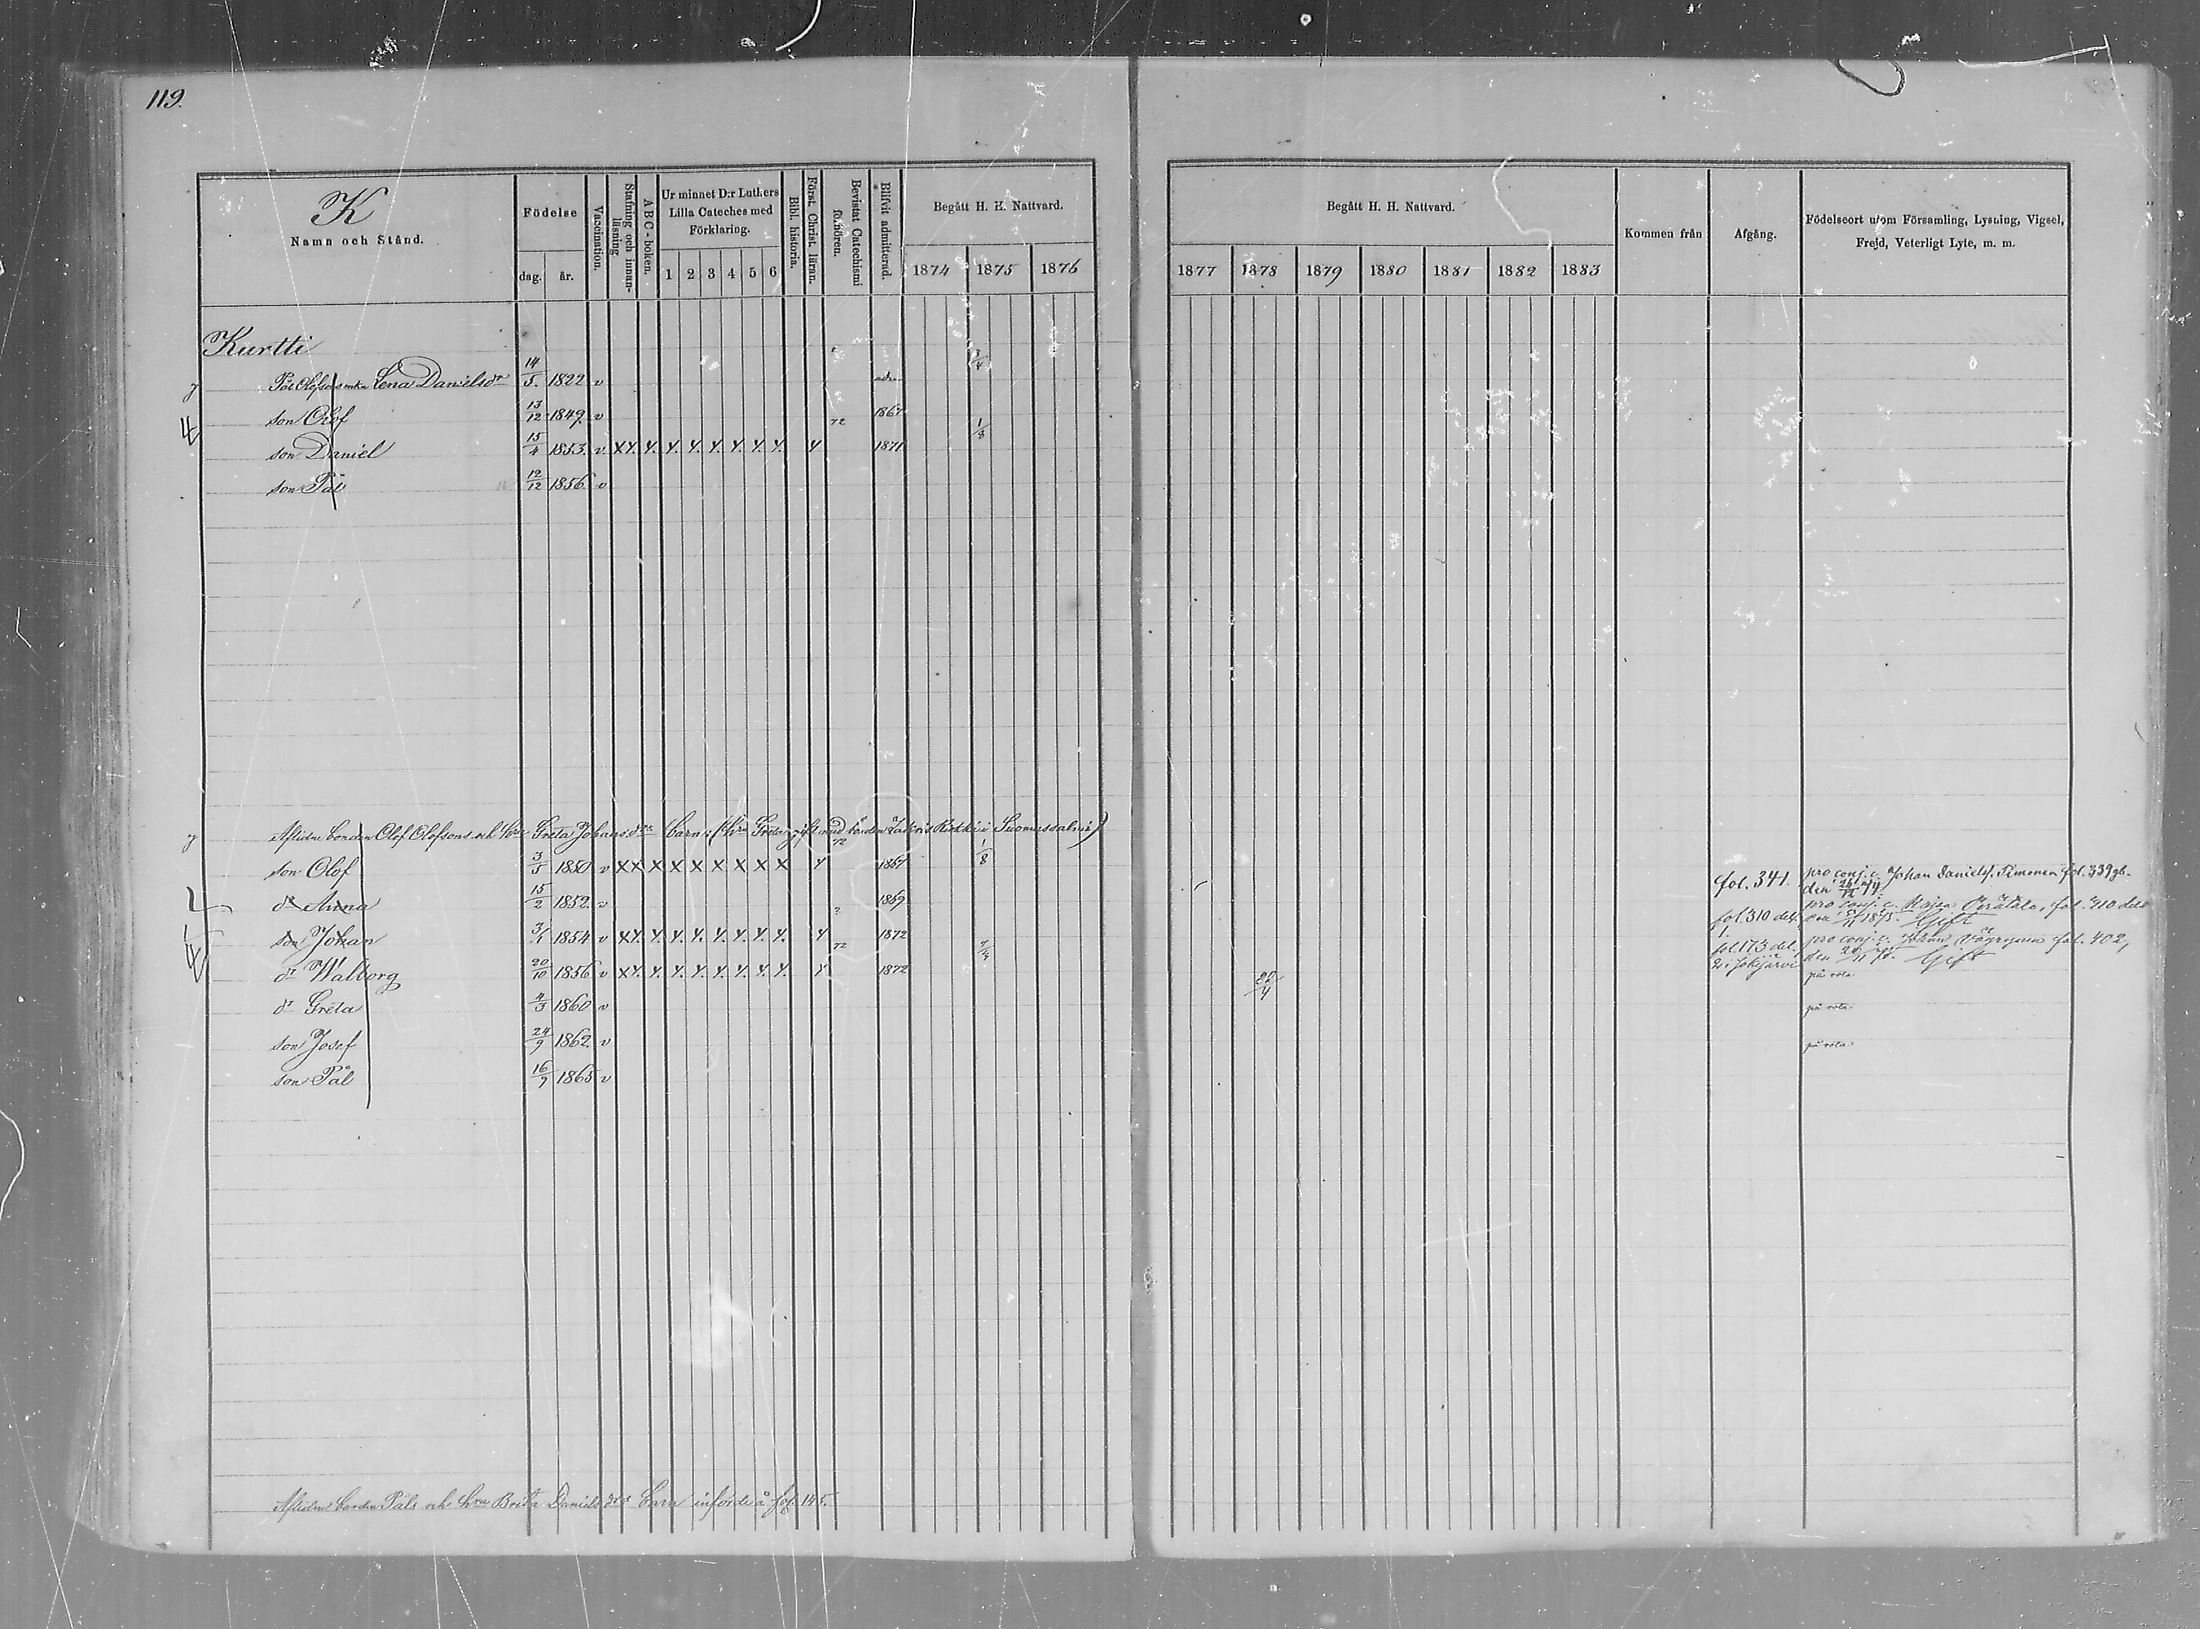 119.
K
Namn och Stånd.
Födelse
dag. år.
Vaccination.
Stafning och innan-läsning
A B C - boken.
Ur minnet D:r Luthers
Lilla Cateches med
Förklaring.
1 2 3 4 5 6
Bibl. historia.
Först. Christ. läran.
Bevistat Catechismi förhören.
Blifvit admitterad.
Begått H. H. Nattvard.
1874 1875 1876
Begått H. H. Nattvard.
1877 1878 1879 1880 1881 1882 1883
Kommen från
Afgång.
Födelseort utom Församling, Lysning, Vigsel,
Frejd, Veterligt Lyte, m. m.
Kurtti
Pål Olofsons enka Lena Danielsdr 14/5. 1822 v adm
son Olof 13/12 1849. v 72 1867
son Daniel 15/4 1853. v. X Y. Y. Y. Y. Y. Y. Y. Y. Y 1871 1/8
son Pål 12/12 1856. v
Aflidne bonden Olof Olofsons och hn Greta Johansdrs barn: (hn Greta gift med bonden Zakris in Suomussalmi)
son Olof 3/5 1850 v X X X X X X X X X Y 72 1867 1/8
dr Anna 15/2 1852. v 1869 fol. 341. pro conj. c. Johan Danielss. Timonen fol. 339 gb. den
son Johan 3/1 1854 v X Y. Y. Y. Y. Y. Y. Y. Y. Y 1872 fol. 310 del. 1. pro conj. c. Perätalo, fol. 410 del den 1875. Gift
dr Walborg 20/10 1856 v X Y. Y. Y. Y. Y. Y. Y. Y. Y. 72 1872 7/4 fol. 173 del. 2. i Jokijärvi pro conj. c. Johan fol. 402, den 20/11 78. Gift
dr Greta 4/3 1860 v 22/4 på rota
son Josef 24/9 1862. v på rota
son Pål 16/9 1865 v på rota
Aflidne bonden Påls och hn Brita Danielsdrs barn införde å fol. 145.